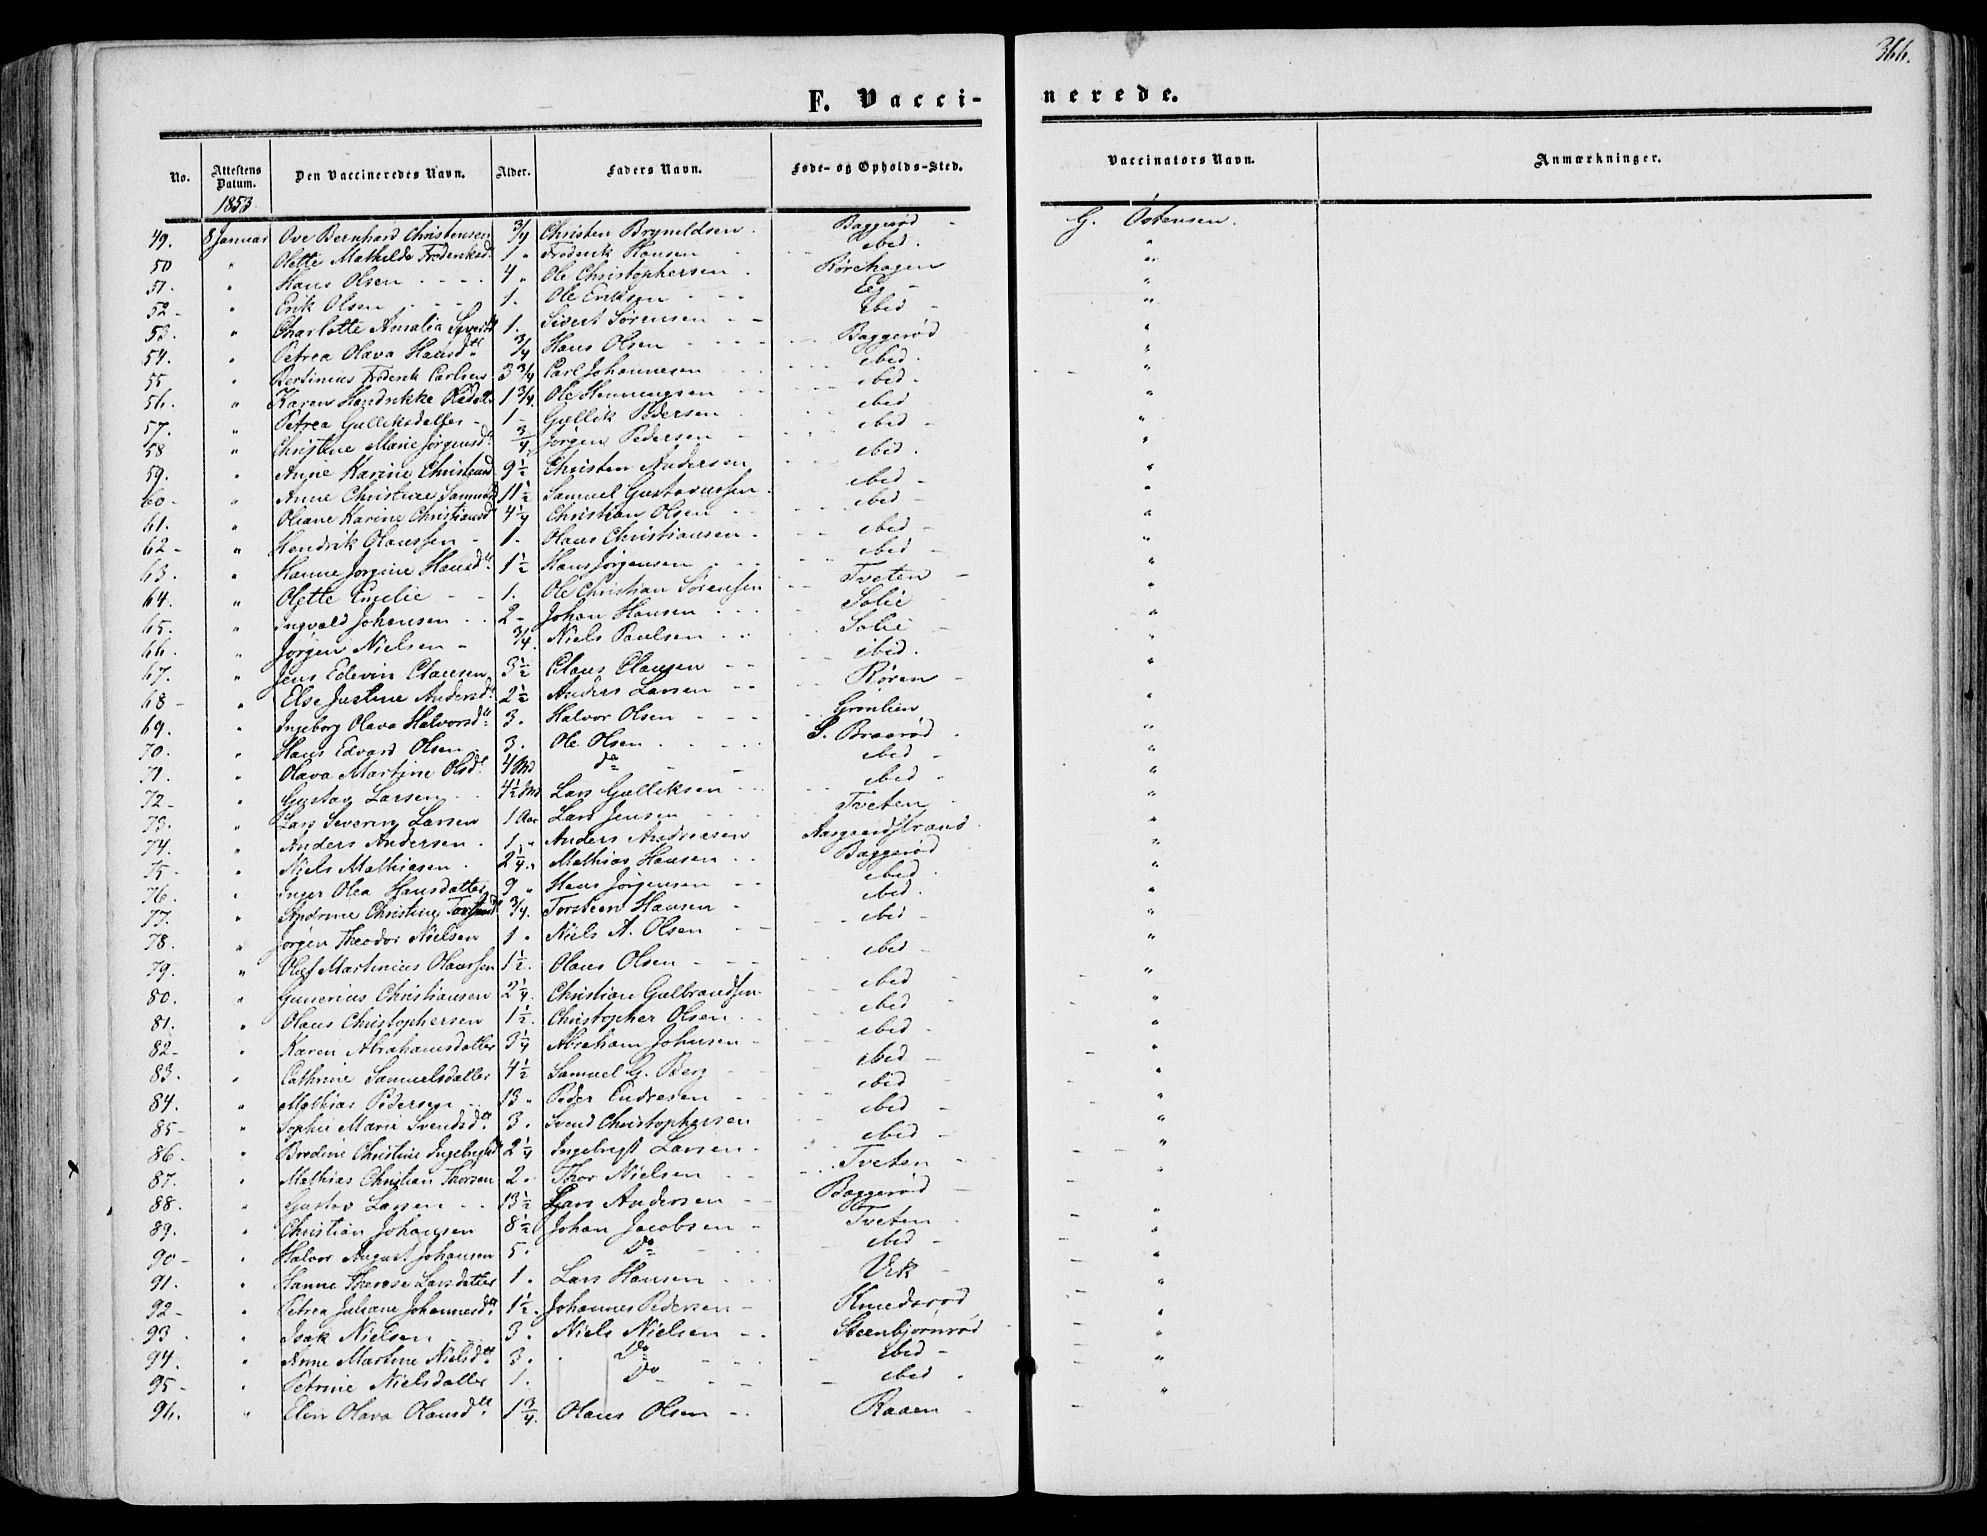 366.
F. Vaccinerede.
No. Attestens Datum. Den Vaccineredes Navn. Alder. Faders Navn. Føde- og Opholds-Sted. Vaccinators Navn. Anmærkninger.
1853
49. 8 Januar Ove Bernhard Christensen 3/4 Christen Bryneldsen. Baggerød - G. Östensen.
50 " Olette Mathilde Frederiksd. 1 " Frederik Hansen - ibid. "
51. " Hans Olsen - - - - 4 " Ole Christophersen. Rørehagen "
52 - " Erik Olsen 1. Ole Eriksen - - - Eeg - "
53. " Charlotte Amalia 1. Sivert Sørensen - - ibid "
54. " Petrea Olava Hansdtr 3/4 Hans Olsen - - - - Baggerød "
55 " Bertinius Frederik Carlsen 3 3/4 Carl Johannesen ibid. "
56. " Karen Hendrikke Olsdatter 1 3/4. Ole Henningsen ibid. "
57. " Petrea Gulliksdatter - 1 - Gullik Pedersen ibid "
58 " Christine Marie Jørgensd. 3/4 Jörgen Pedersen - ibid - "
59. " Anne Karine Christensd. 9 1/2 Christen Andersen ibid. "
60 - " Anne Christine Samuelsd. 11 1/2 Samuel Gustavussen. ibid - "
61. " Oleane Karine Christiansd. 4 1/4 Christian Olsen - - ibid - "
62 - " Hendrik Olaussen - 1. Olaus Christiansen - ibid - "
63. " Hanne Jorgine Hansd. 1 1/2 Hans Jörgensen ibid - "
64. " Olette Emelie - - 1. Ole Christian Sörensen Tveten - "
65. " Ingvald Johansen - - 2 - Johan Hansen - - - Solie - "
66. " Jørgen Nielsen - 3/4. Niels Paulsen Solie - "
67. " Jens Edevin Clausen 3 1/2 Claus Clausen - - ibid. "
68 - " Else Justine Andersd. 2 1/2 Anders Larsen - - Røren - "
69. " Ingeborg Olava Halvorsd. 3. Halvor Olsen - - - Grønlien "
70. " Hans Edvard Olsen 3. Ole Olsen S. Braarød. "
71. " Olava Martine Olsd. 4 Md Do ibid - "
72 - " Gustav Larsen 4 1/2 Md Lars Gulliksen ibid - "
73. " Lars Severin Larsen 1 Aar Lars Jensen Tveten. "
74. " Anders Andersen - 1. Anders Andreasen Aasgaardstrand. "
75 - " Niels Mathiesen 2 1/4 " Mathias Hansen - - Baggerød. "
76. " Inger Olea Hansdatter 9 " Hans Jörgensen - - ibid. "
77. " Andrine Christine 3/4. Torsteen Hansen - ibid. "
78. " Jörgen Theodor Nielsen 1 " Niels A. Olsen - - ibid - "
79. " Oluf Martinius Olaussen 1 1/2. Olaus Olsen - - - ibid - "
80. " Gunerius Christiansen 2 1/4. Christian Gulbrandsen. ibid - "
81. " Olaus Christophersen 1 1/2. Christopher Olsen. ibid - "
82 - " Karen Abrahamsdatter 3 1/4 Abraham Johnsen - ibid - "
83. " Cathrine Samuelsdatter 4 1/2 Samuel G. Berg ibid - "
84. " Mathias Pedersen 13 " Peder Endresen - ibid - "
85 - " Sophie Marie Svendsd. 3. Svend Christophersen ibid - "
86. " Bredine Christine 2 1/4 Ingebregt Larsen - ibid - "
87. " Mathias Christian Thorsen 2. Thor Nielsen Tveten - "
88. " Gustav Larsen - - 13 1/2 Lars Andersen - - Baggerød - "
89. " Christian Johansen 8 1/2 Johan Jacobsen - Tveten. "
90 - " Halvor August Johansen 5. Do ibid - "
91. " Hanne Therese Larsdatter 1. Lars Hansen - Vik - "
92 - " Petrea Juliane Johannesd. 1 1/2. Johannes Pedersen - Knudsrød "
93. " Isak Nielsen 3. Niels Nielsen - - Steenbjørnrød "
94. " Anne Martine Nielsd. 3. Do ibid - "
95 - " Petrine Nielsdatter 1. Do ibid. "
96. " Elen Olava Olausd. 1 3/4. Olaus Olsen - - Raaen - "